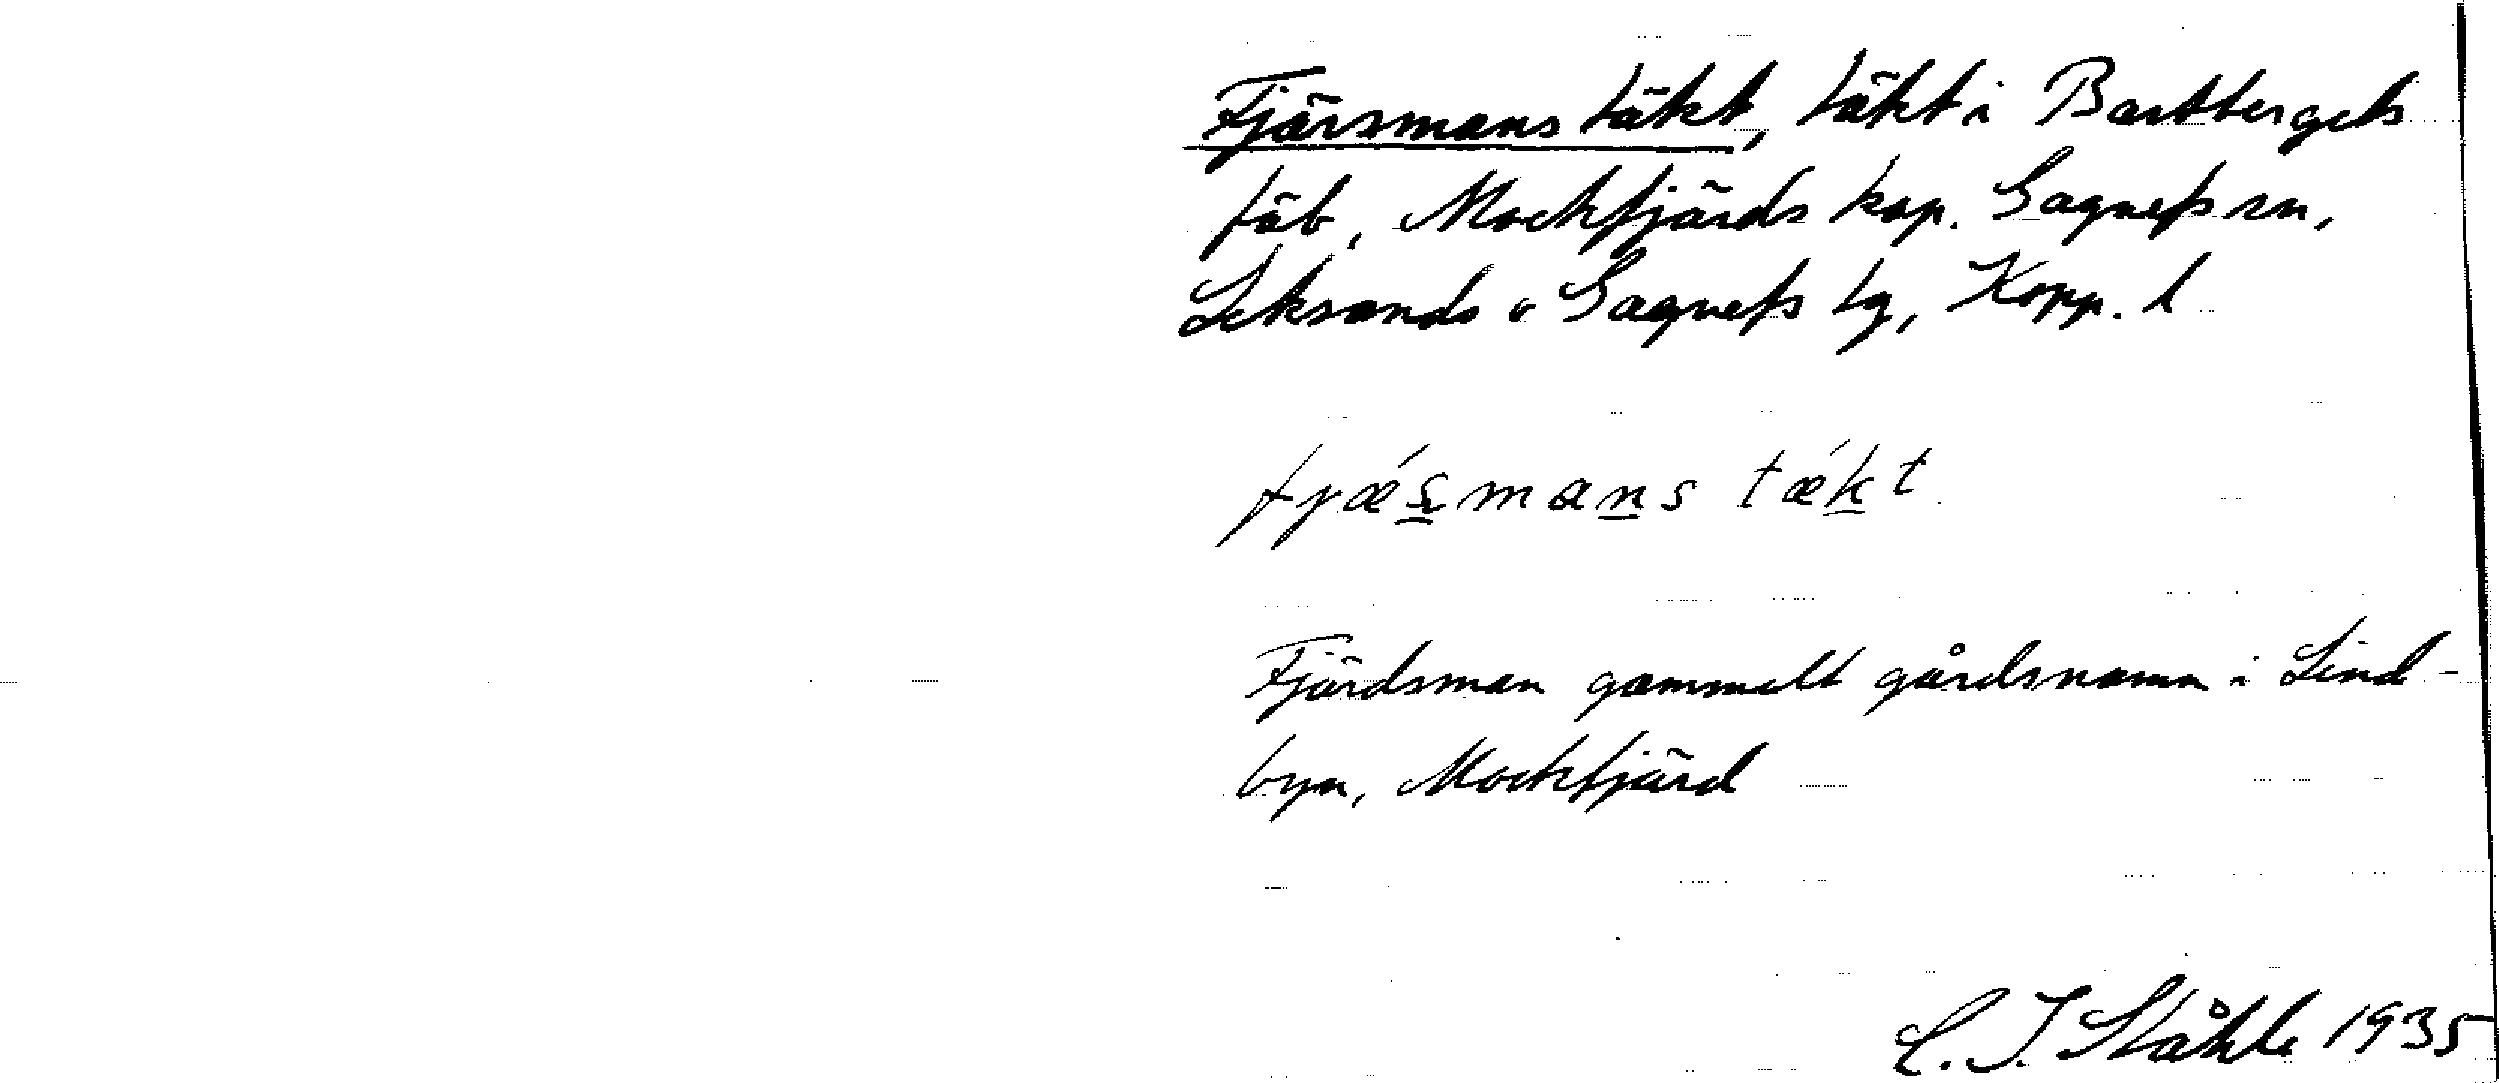 Fjärsmans täkt, täkt i Bastbergets
fäb, Mockfjärds kap. Gagnefs sn,
Leksands o Gagnefs tg, Kopp. l
fjǽs̠man̠s tǽk̠t
Fjärdsman gammalt gårdsnamn i Lind-
byn, Mockfjärd
C. I. Ståhle 1935